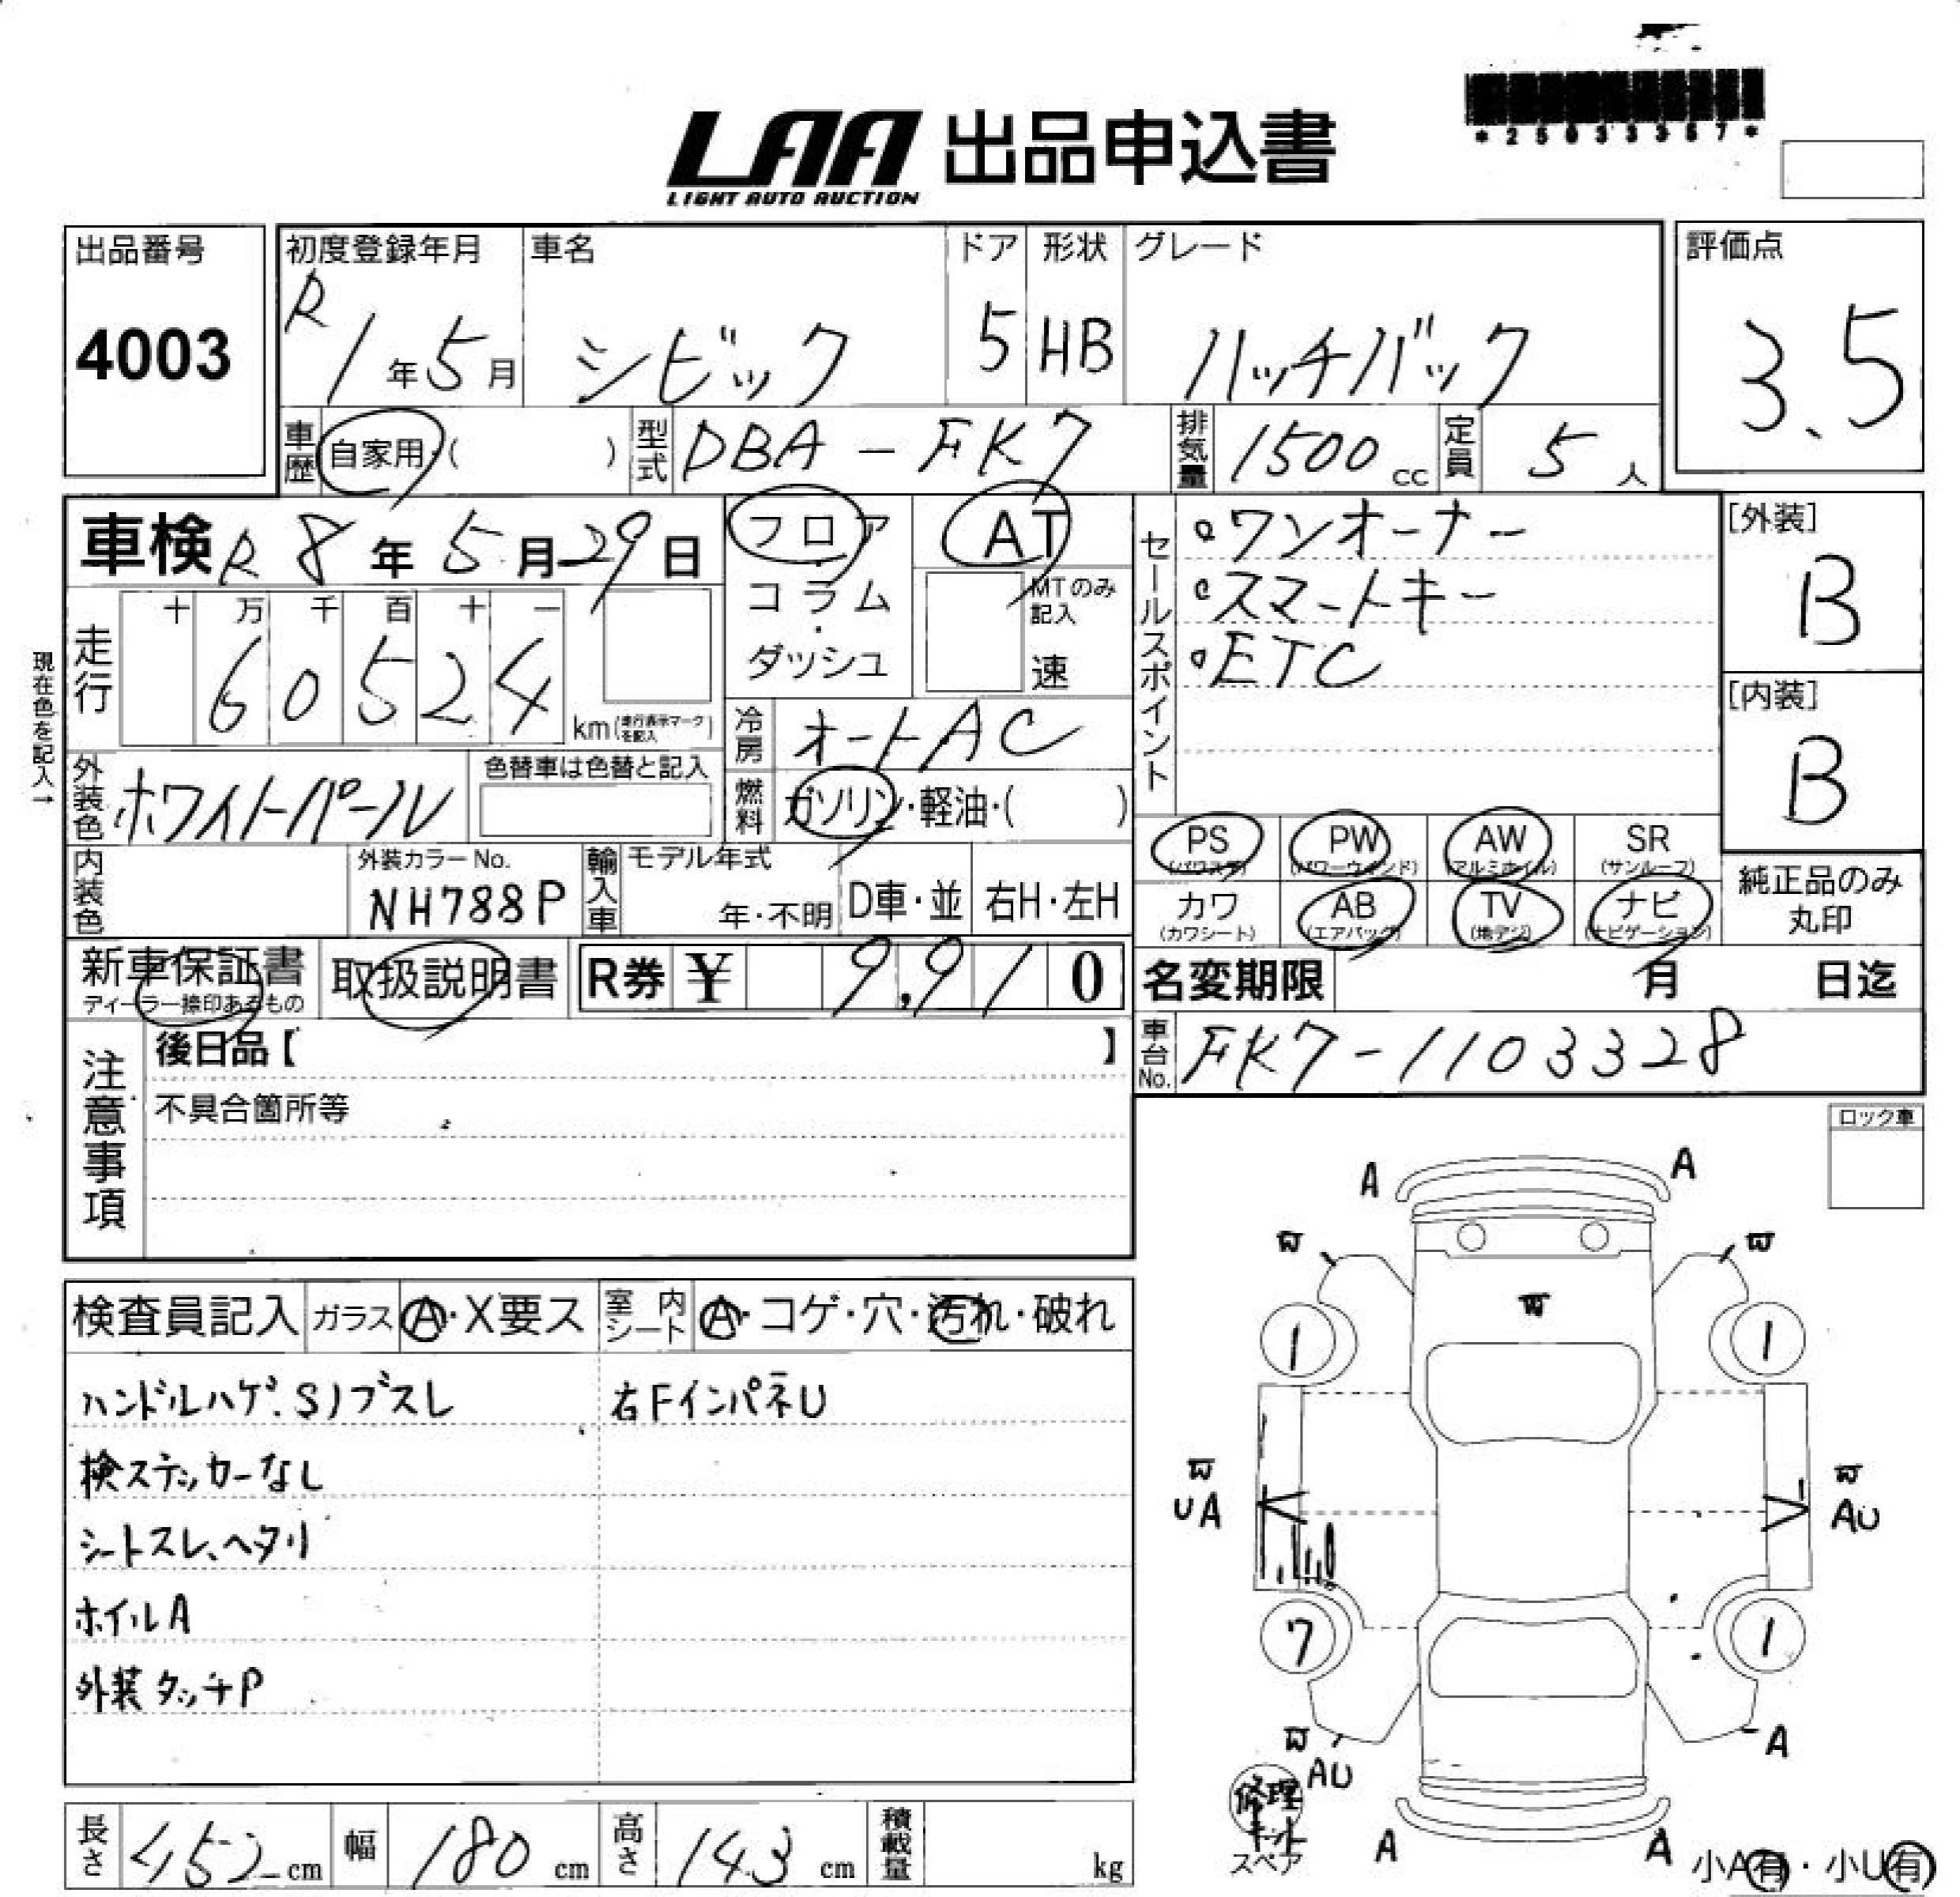 *25033367*
LAA 出品申込書
LIGHT AUTO AUCTION
出品番号
4003
初度登録年月
R1年5月
車名
シビック
ドア
5
形状
HB
グレード
ハッチバック
評価点
3.5
車歴 自家用・( )
型式 DBA-FK7
排気量 1500cc
定員 5人
車検 R8年5月29日
フロア
コラム・
ダッシュ
AT
MTのみ記入
速
セールスポイント
・ワンオーナー
・スマートキー
・ETC
[外装]
B
[内装]
B
現在色を記入→
走行
十 万 千 百 十 一
60524
km(走行表示マークを記入)
冷房 オートAC
外装色 ホワイトパール
色替車は色替と記入
燃料 ガソリン・軽油・( )
PS (パワステ) PW (パワーウインド) AW (アルミホイル) SR (サンルーフ)
カワ (カワシート) AB (エアバック) TV (地デジ) ナビ (ナビゲーション)
純正品のみ
丸印
内装色
外装カラーNo.
NH788P
輸入車
モデル年式
年・不明
D車・並
右H・左H
新車保証書
ディーラー捺印あるもの
取扱説明書
R券 ¥ 9,910
名変期限 月 日迄
車台No. FK7-1103328
注意事項
後日品【 】
不具合箇所等
ロック車
検査員記入 ガラス A・X要ス 室内シート A・コゲ・穴・汚れ・破れ
ハンドルハゲ.Sノブスレ 右FインパネU
検ステッカーなし
シートスレ、ヘタリ
ホイルA
外装タッチP
A A
1 1
UA AU
7 1
AU A
修理キット
スペア
A A
小A有・小U有
長さ 452cm
幅 180cm
高さ 143cm
積載量 kg